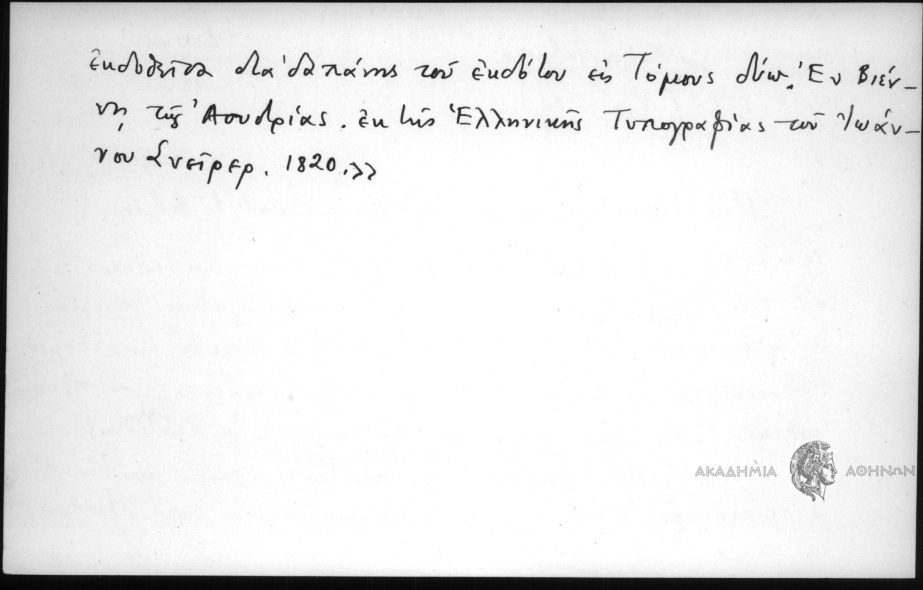 ἐκδοθεῖσα διὰ δαπάνης τοῦ ἐκδότου εἰς Τόμους δύω. Ἐν Βιέν-
νῃ τῆς Ἀουστρίας. ἐκ τῆς Ἑλληνικῆς Τυπογραφίας τοῦ Ἰωάν-
νου Σνεῖρερ. 1820.»
ΑΚΑΔΗΜΙΑ ΑΘΗΝΩΝ